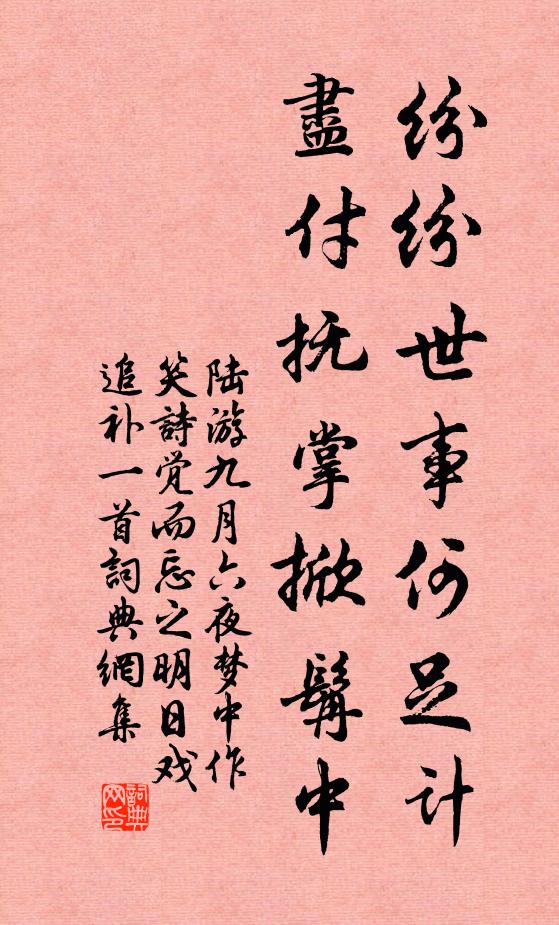 纷纷世事何足计
盡付抚掌掀髯中
陆游九月六夜梦中作
笑詩觉而忘之明日戏
追补一首詞典網集
詞典
网印